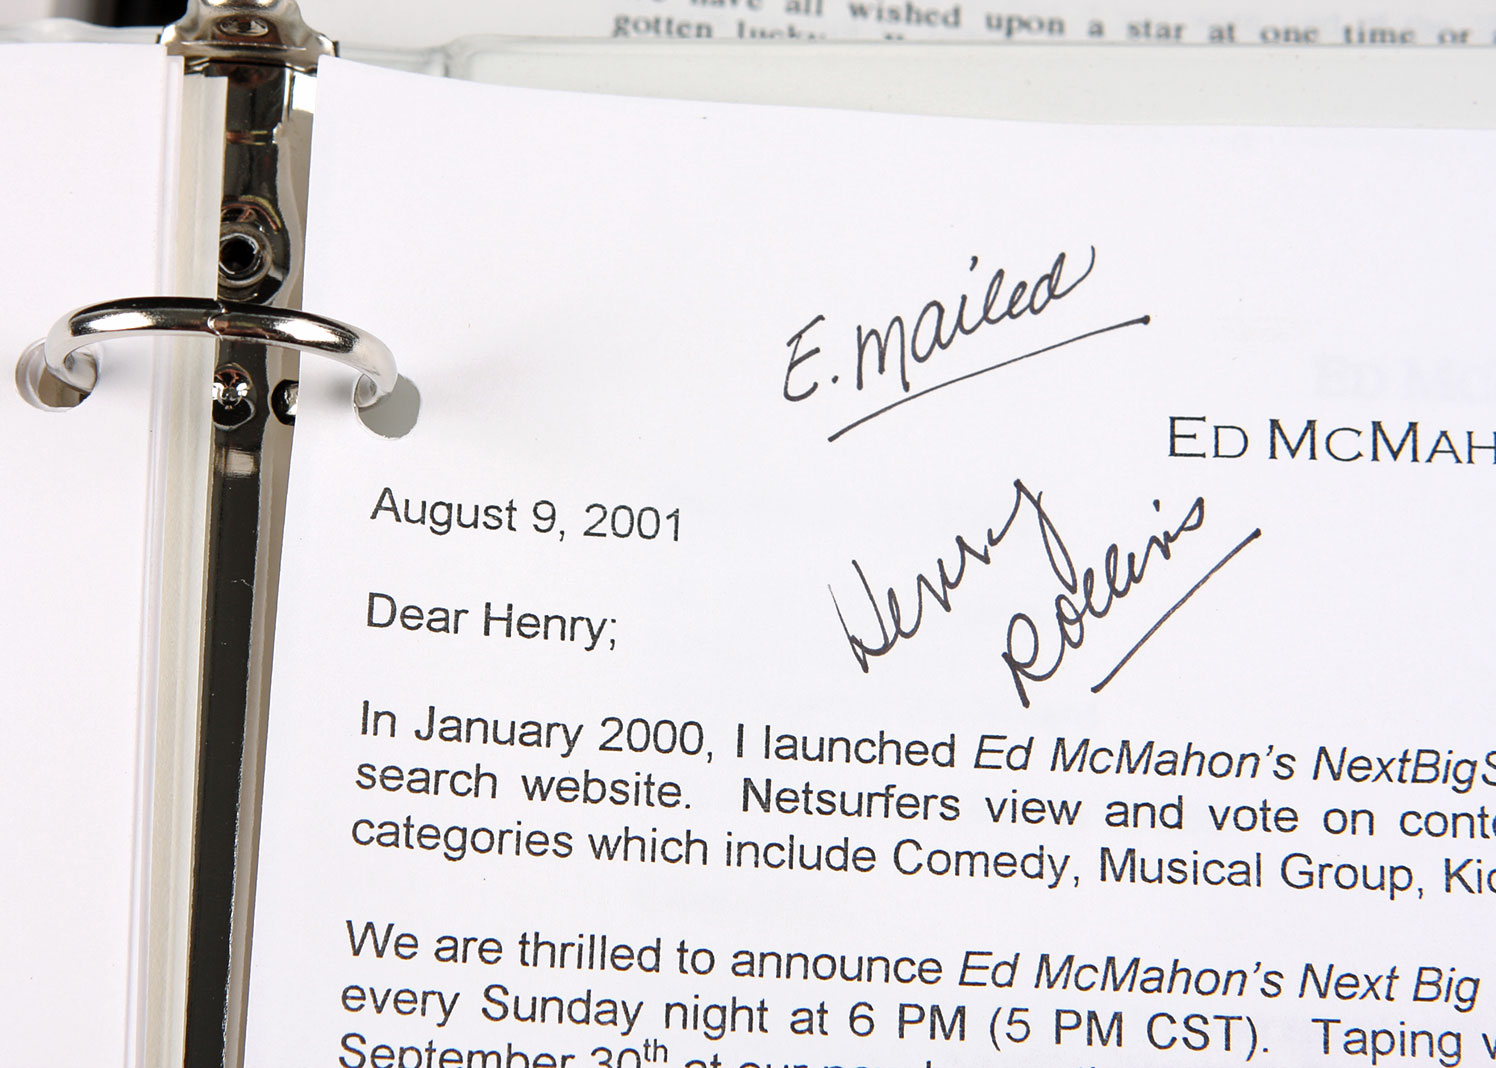 have all wished upon a star at one time or
gotten lucky.
E. Mailed
ED MCMAH
August 9, 2001
Henry
Rollins
Dear Henry;
In January 2000, I launched Ed McMahon's NextBigS
search website. Netsurfers view and vote on conte
categories which include Comedy, Musical Group, Kid
We are thrilled to announce Ed McMahon's Next Big
every Sunday night at 6 PM (5 PM CST). Taping
September 30th at our